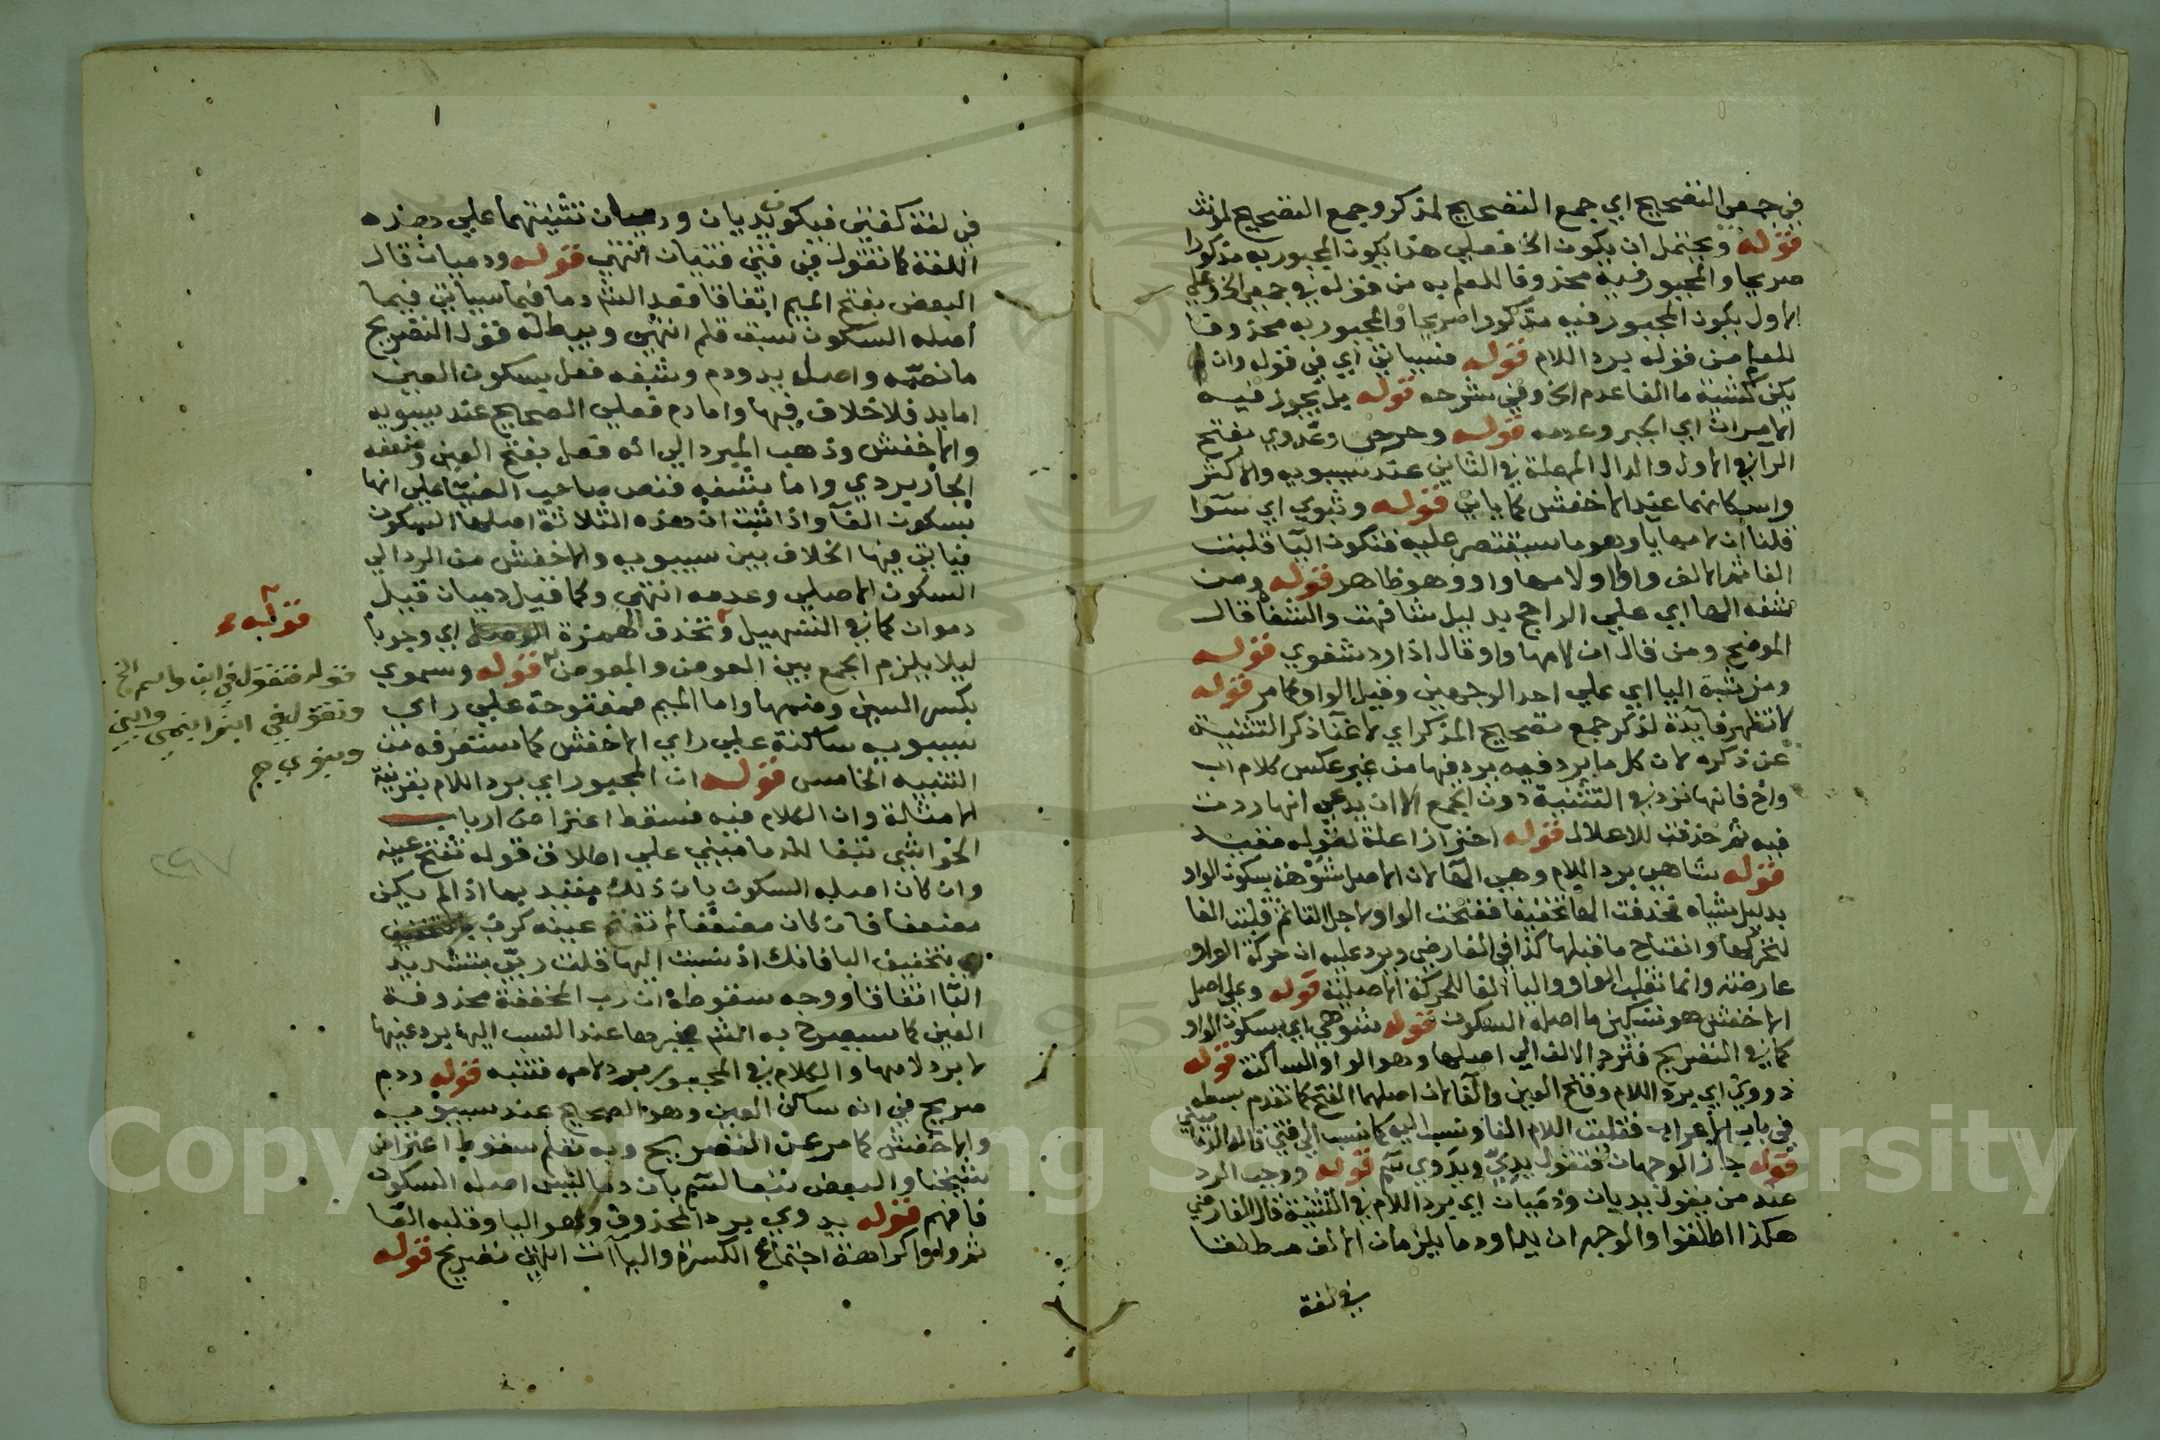 في جمعي التصحيح اي جمع التصحيح لمذكر وجمع التصحيح لمونث
قوله ويحتمل ان يكون الخ فعلي هذا يكون المجبور به مذكورا
صريحا والمجبور فيه محذوفا للعلم به من قوله في جمعي الخ وعلي
الاول يكون المجبور فيه مذكورا صريحا والمجبور به محذوفا
للعلم من قوله يرد اللام قوله فسياتي اي في قوله وان
يكن كشية ما الفا عدم الخ وفي شرحه قوله يجوز فيه
الامران اي الجبر وعدمه قوله وحرحي وغدوي بفتح
الرا في الاول والدال المهملة في الثاني عند سيبويه والاكثر
واسكانهما عند الاخفش كما ياتي قوله وثبوي اي سوا
قلنا ان لامها يا وهو ما سيقتصر عليه فتكون اليا قلبت
الفا ثم الالف واوا او لامها واو وهو ظاهر قوله ومن
شفه الها اي علي الراجح بدليل شافهت والشفاه قال
الموضح ومن قال ان لامها واو قال اذا رد شفوي قوله
ومن ثبة اليا اي علي احد الوجهين وقيل الواو كما مر قوله
لا تظهر فايدة لذكر جمع تصحيح المذكر اي لاغناء ذكر التثنية
عن ذكره لان كل ما يرد فيه يرد فيها من غير عكس كلام اب
واخ فانها ترد في التثنية دون الجمع الا ان يدعي انها ردت
فيه ثم حذفت للاعلال قوله احترازا علة لقوله مقيد
قوله شاهي برد اللام وهي الها لان الاصل شوهة بسكون الواو
بدليل شياه فحذفت الها تخفيفا ففتحت الواو لاجل التا ثم قلبت الفا
لتحركها وانفتاح ما قبلها كذا في الفارضي ويرد عليه ان حركة الواو
عارضة وانما تقلب الواو واليا الفا للحركة الاصلية قوله وعلي اصل
الاخفش هو تسكين ما اصله السكون قوله شوهي اي بسكون الواو
كما في التصريح فترد الالف الي اصلها وهو الواو الساكنة قوله
ذووي اي برد اللام وفتح العين والفا لان اصلهما الفتح كما تقدم بسطه
في باب الاعراب فقلبت اللام الفا ونسب اليه كما نسب الي فتي قاله
قوله جاز الوجهان فتقول يدي ويدوي سم قوله ووجب الرد
عند من يقول يديان ودميان اي يرد اللام في التثنية قال الفارضي
هكذا اطلقوا والوجه ان يدا ودما يلزمان الالف مطلقا
في لغة
١
في لغة كفتي فيكون يديان ودميان تثنيتهما علي هذه
اللغة كما تقول في فتي فتيان انتهي قوله ودميان قال
البعض بفتح الميم اتفاقا فعد الشم دما فيما سياتي فيما
اصله السكون سبق قلم انتهي ويبطله قول التصريح
ما نصه واصل يد ودم وشفه فعل بسكون العين
اما يد فلا خلاف فيها واما دم فعلي الصحيح عند سيبويه
والاخفش وذهب المبرد الي انه فعل بفتح العين وضعفه
الجاربردي واما شفه فنص صاحب الضيا علي انها
بسكون الفا واذا ثبت ان هذه الثلاثة اصلها السكون
فياتي فيها الخلاف بين سيبويه والاخفش من الرد الي
السكون الاصلي وعدمه انتهي وكما قيل دميان قيل
دموان كما في التسهيل وتحذف الهمزة اي وجوبا
ليلا يلزم الجمع بين العوض والمعوض قوله وسموي
بكسر السين وضمها واما الميم فمفتوحة علي راي
سيبويه ساكنة علي راي الاخفش كما ستعرفه من
التنبيه الخامس قوله ان المجبور اي برد اللام بقرينة
الامثلة وان الكلام فيه فسقط اعتراض ارباب
الحواشي تبعا للدماميني علي اطلاق قوله تفتح عينه
وان كان اصله السكون بان ذلك مقيد بما اذا لم يكن
مضعفا فان كان مضعفا لم تفتح عينه كرب
بتخفيف البا فانك اذ نسبت اليها قلت ربي بتشديد
البا اتفاقا ووجه سقوطه ان رب المخففة محذوفة
العين كما سيصرح به الشم فجبرها عند النسب اليها يرد عينها
لا برد لامها والكلام في المجبور برد لامه فتنبه قوله ودم
صريح في انه ساكن العين وهو الصحيح عند سيبويه
والاخفش كما مر عن التصريح وبه تعلم سقوط اعتراض
شيخنا والبعض تبعا لسم بان دما ليس اصله السكون
فافهم قوله يدوي برد المحذوف وهو اليا وقلبه الفا
ثم واوا كراهة اجتماع الكسرة والياآت انتهي تصريح قوله
قوله
قوله فتقول في ابن واسم الخ
وتقول في ابنم ابنمي وابني
وبنوي صح
٢٩٧